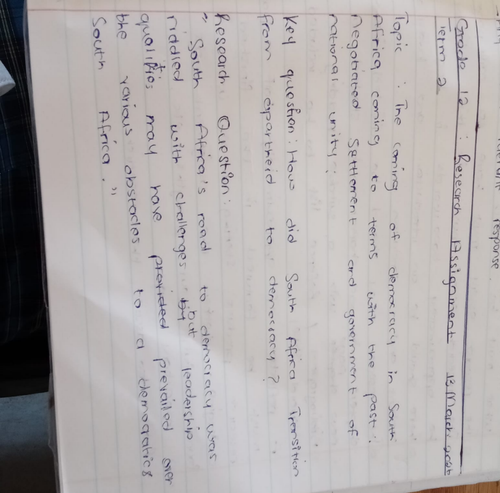 response
Grade 12 : Research Assignment 13 March
Term 2
Topic : The coming of democracy in South
Africa coming to terms with the past :
negotiated settlement and government of
national unity :
Key question : How did South Africa Transition
from apartheid to democracy ?
Research Question :
" South Africa's road to democracy was
riddled with challenges but leadership
qualities may have provided prevailed over
the various obstacles to a democratics
South Africa . "